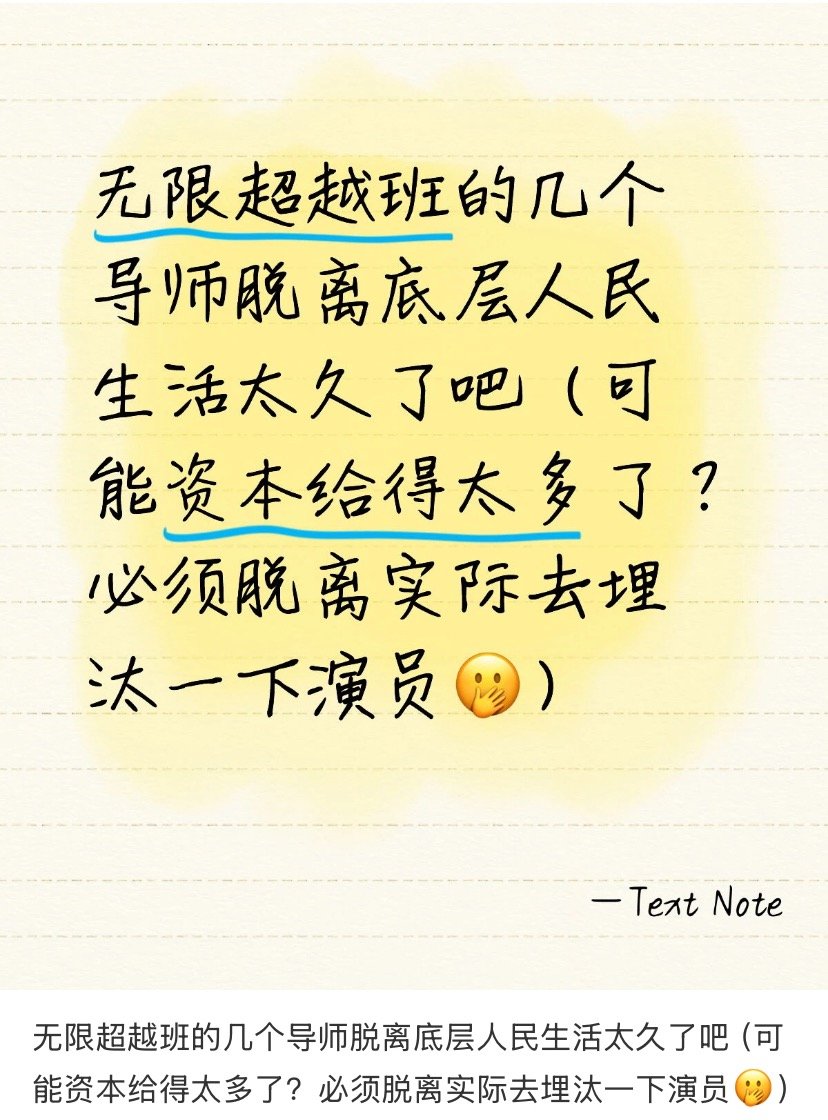 无限超越班的几个
导师脱离底层人民
生活太久了吧（可
能资本给得太多了？
必须脱离实际去埋
汰一下演员🫢）
—Text Note
无限超越班的几个导师脱离底层人民生活太久了吧（可
能资本给得太多了？必须脱离实际去埋汰一下演员🫢）